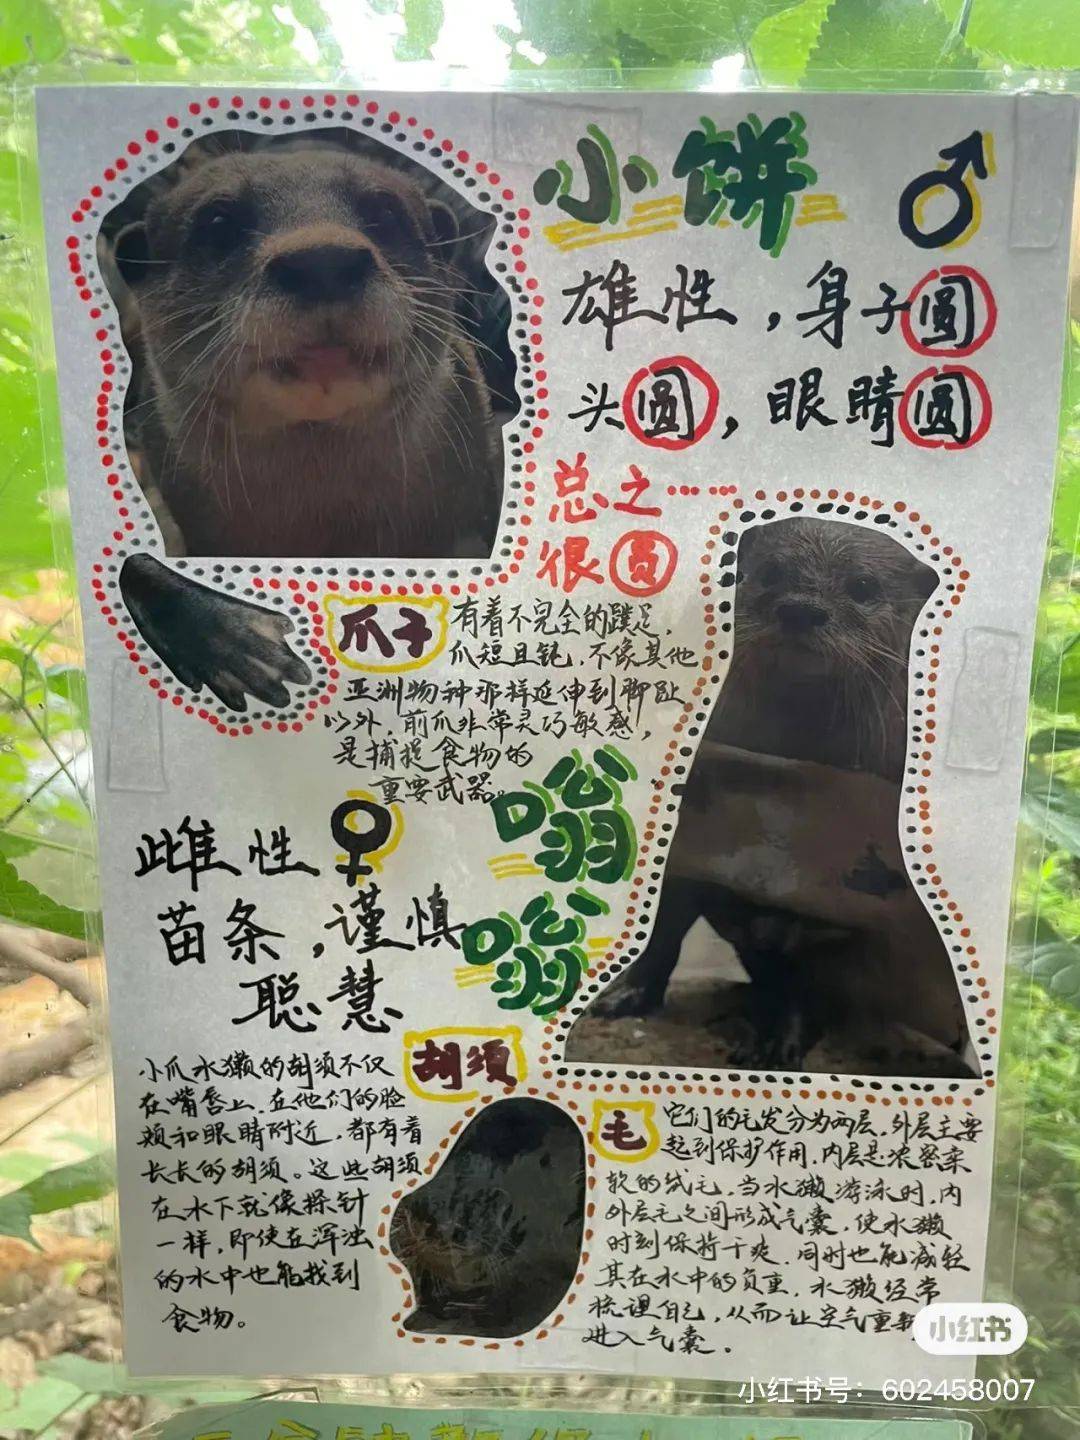 小饼 ♂
雄性，身子圆
头圆，眼睛圆
总之……
很圆
爪子
有着不完全的蹼足，
爪短且钝，不像其他
亚洲物种那样延伸到脚趾
以外，前爪非常灵巧敏感，
是捕捉食物的
重要武器。
嗡嗡
雌性♀
苗条，谨慎
聪慧
胡须
小爪水獭的胡须不仅
在嘴唇上，在他们的脸
颊和眼睛附近，都有着
长长的胡须。这些胡须
在水下就像探针
一样，即使在浑浊
的水中也能找到
食物。
毛
它们的毛发分为两层，外层主要
起到保护作用，内层是浓密柔
软的绒毛，当水獭游泳时，内
外层毛之间形成气囊，使水獭
时刻保持干爽，同时也能减轻
其在水中的负重，水獭经常
梳理自己，从而让空气重新
进入气囊。
小红书
小红书号：602458007